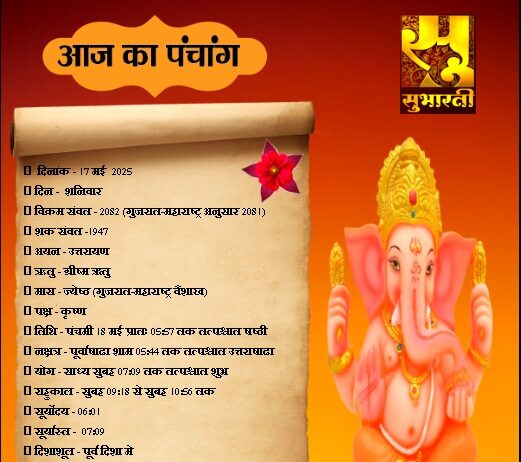 आज का पंचांग
सुभारती
दिनांक - 17 मई 2025
दिन - शनिवार
विक्रम संवत - 2082 (गुजरात-महाराष्ट्र अनुसार 2081)
शक संवत -1947
अयन - उत्तरायण
ऋतु - ग्रीष्म ऋतु
मास - ज्येष्ठ (गुजरात-महाराष्ट्र वैशाख)
पक्ष - कृष्ण
तिथि - पंचमी 18 मई प्रातः 05:57 तक तत्पश्चात षष्ठी
नक्षत्र - पूर्वाषाढा शाम 05:44 तक तत्पश्चात उत्तराषाढा
योग - साध्य सुबह 07:09 तक तत्पश्चात शुभ
राहुकाल - सुबह 09:18 से सुबह 10:56 तक
सूर्योदय - 06:01
सूर्यास्त - 07:09
दिशाशूल - पूर्व दिशा मे